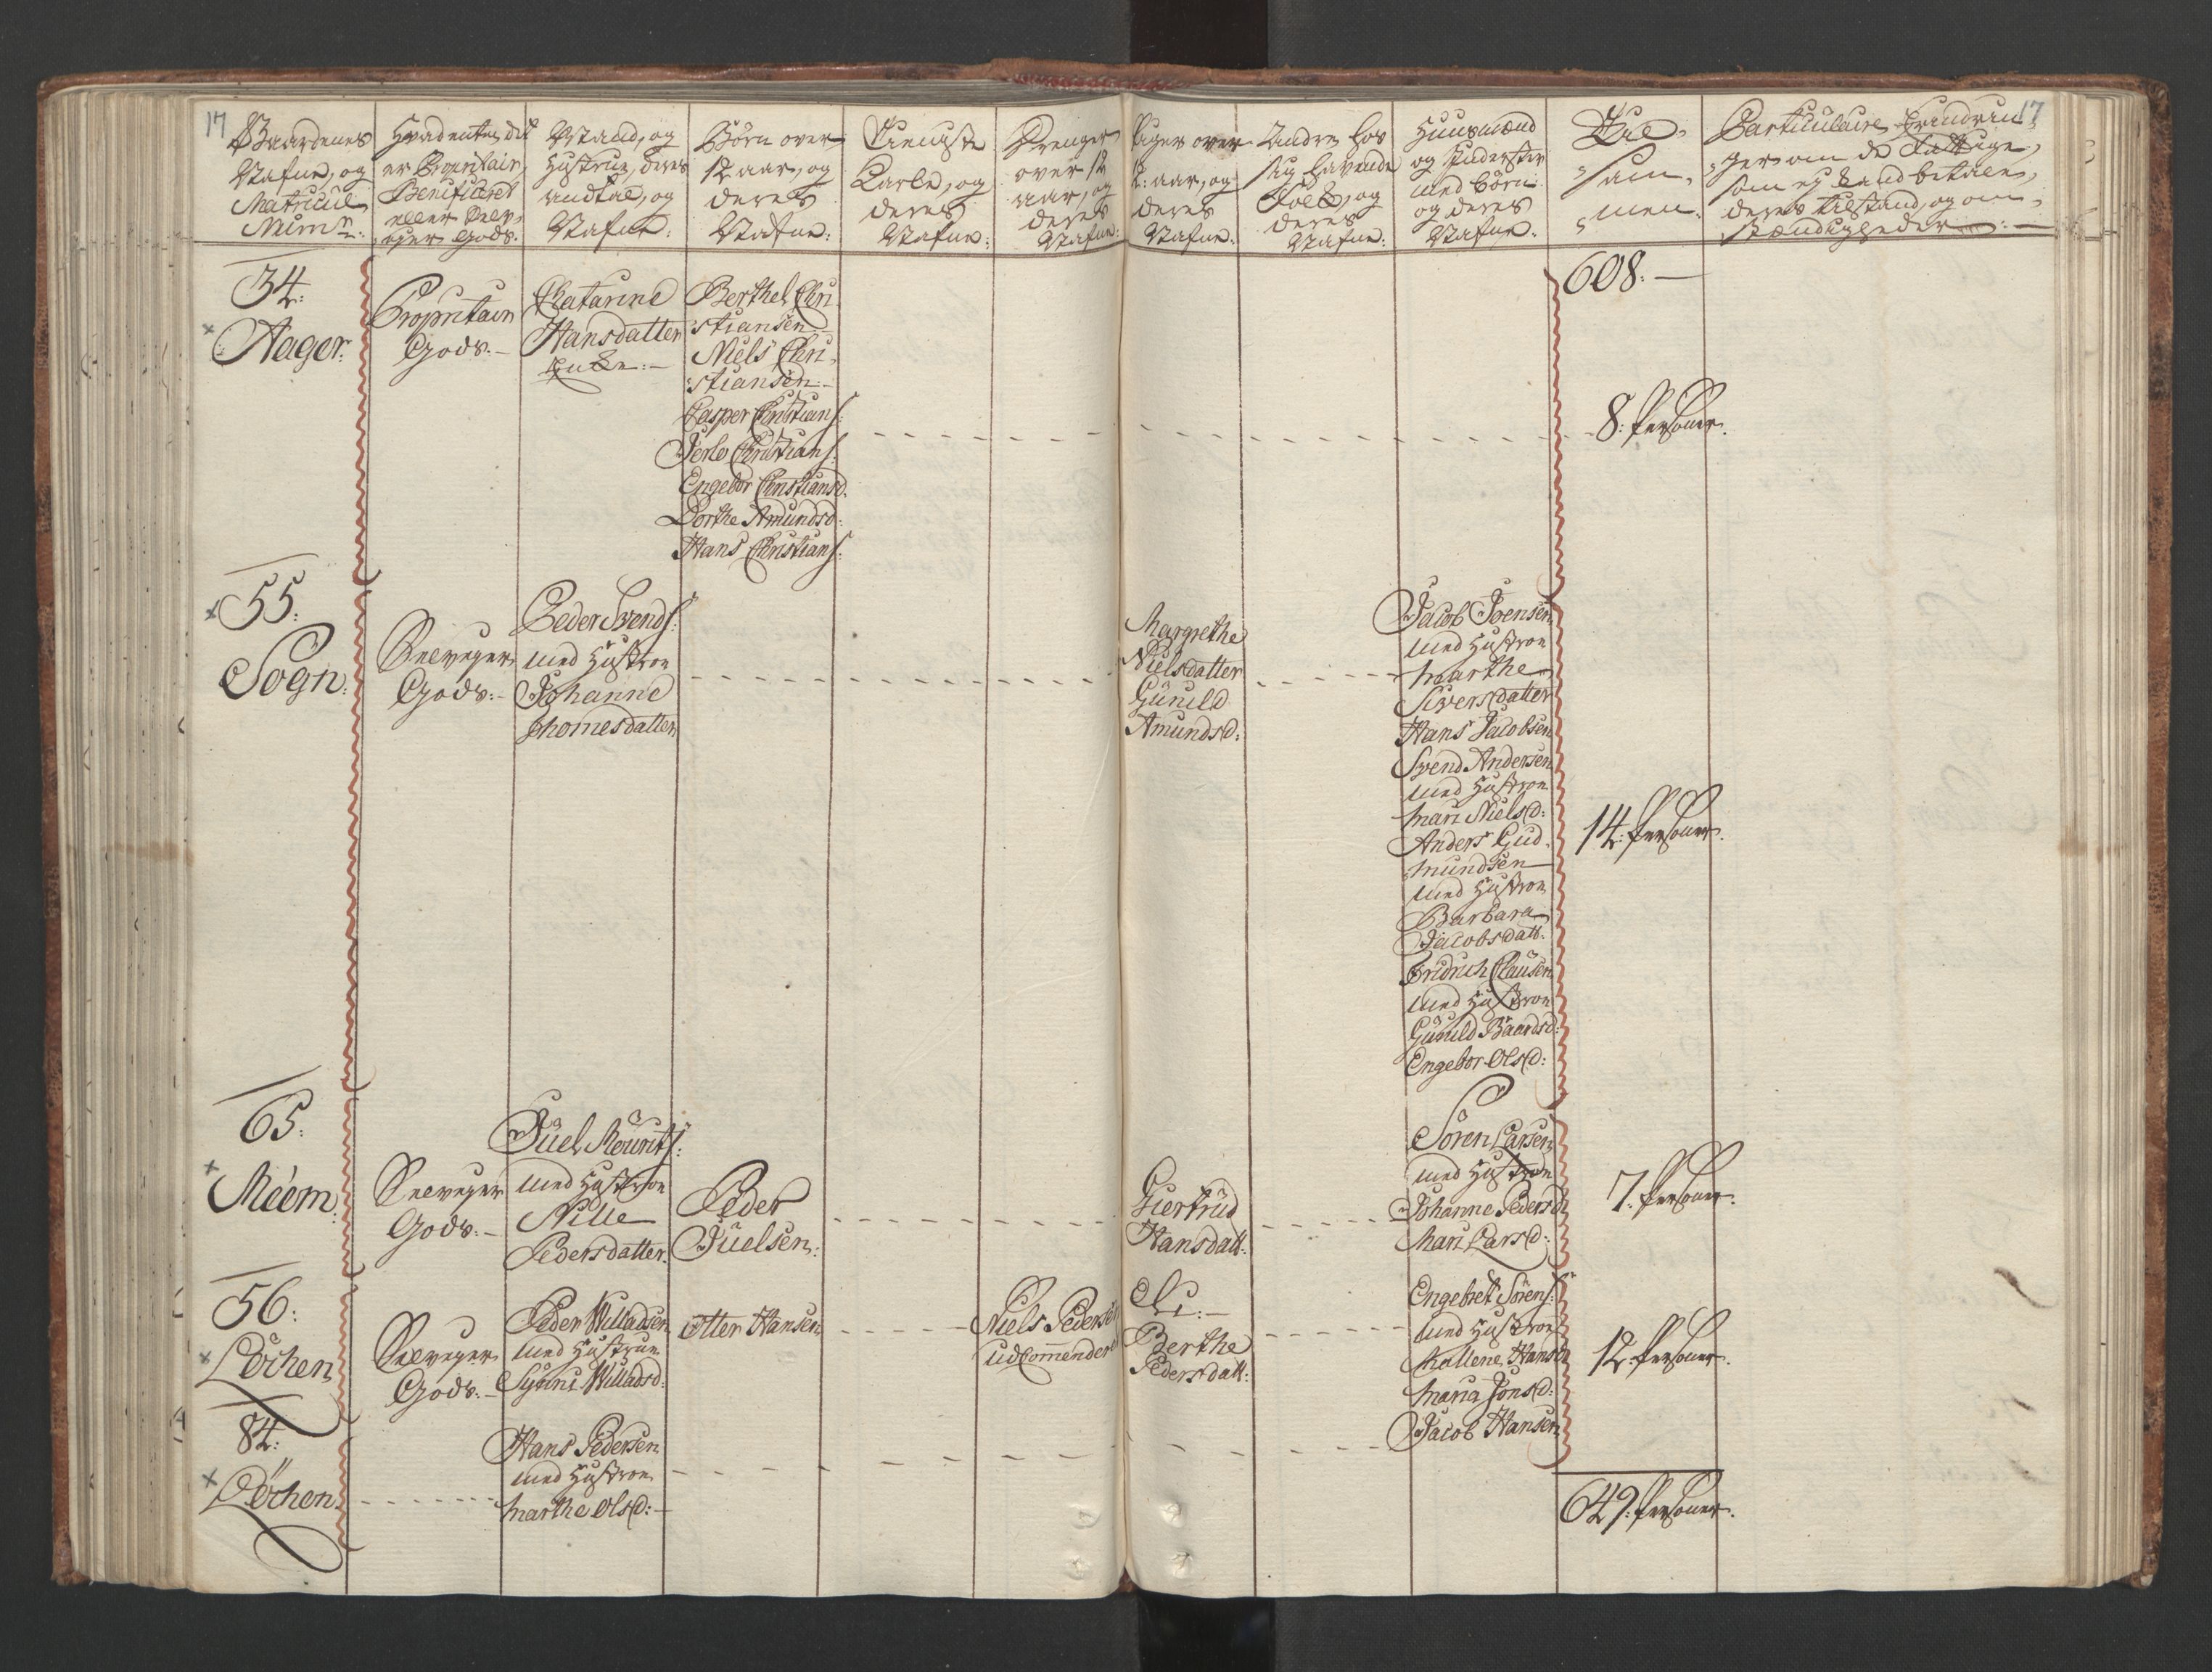 17
Gaardenes
Nafne, og
Matricul
Numr:
Hvad enten det
er Propritair,
Beneficeret
eller Selv-
ejer Gods.
Mænd, og
Hustrue, deres
andtal, og
Nafne:
Børn over
12 aar, og
deres
Nafne:
Tieniste
Karle, og
deres
Nafne:
Drenge
over 12
aar, og
deres
Nafne:
Piger over
12: aar, og
deres
Nafne:
Andre hos
sig havende
Folk, og
deres
Nafne:
Huusmænd
og Inderster
med Børn
og deres
Nafne.
Til-
sam-
men.
Particulaire Erindrin- 17
ger om de Fattige,
som ej kand betale,
deres tilstand, og om-
stændigheder:
34:
Hager:
Propritair
Gods:
Chatarine
Hansdatter
Enke:
Berthel Chri-
stiansen
Niels Chri-
stiansen:
Casper Christians:
Terlo Christians:
Engebor Christiansd.
Dorthe Amundsd:
Hans Christians:
608:
8: Personer.
55:
Sogn:
Selvejer
Gods:
Peder Svends:
med Hustroe
Johanne
Thomesdatter
Margrethe
Nielsdatter
Gunild
Amundsd:
Jacob Joensen
med Hustroe
Marthe
Siversdatter
Hans Jacobsen
Svend Andersen
med Hustroe
Mari Nielsd:
Anders Gud-
mundsen
med Hustroe
Barbara
Jacobsdatt.
Fridrich Clausen
med Hustroe
Gunild Baardsd:
Engebor Olsd:
14: Personer.
65:
Méem:
Selvejer
Gods:
Juel Mourits:
med Hustroe
Nille
Pedersdatter.
Peder
Juelsen:
Giertrud
Hansdatt:
Søren Larsen
med Hustroe
Johanne Pedersd
Mari Larsd:
7: Personer.
56:
Löchen
Selvejer
Gods:
Peder Willadsen
med Hustrue
Synni Willadsd:
Otter Hansen
Niels Pedersen
udCommenderet
Eli:
Berthe
Pedersdatt:
Engebret Sörens:
med Hustroe
Mallene Hansd
Maria Jonsd:
Jacob Hansen
12: Personer.
84:
Löchen
Hans Pedersen
med Hustroe
Marthe Olsd:
649: Personer.